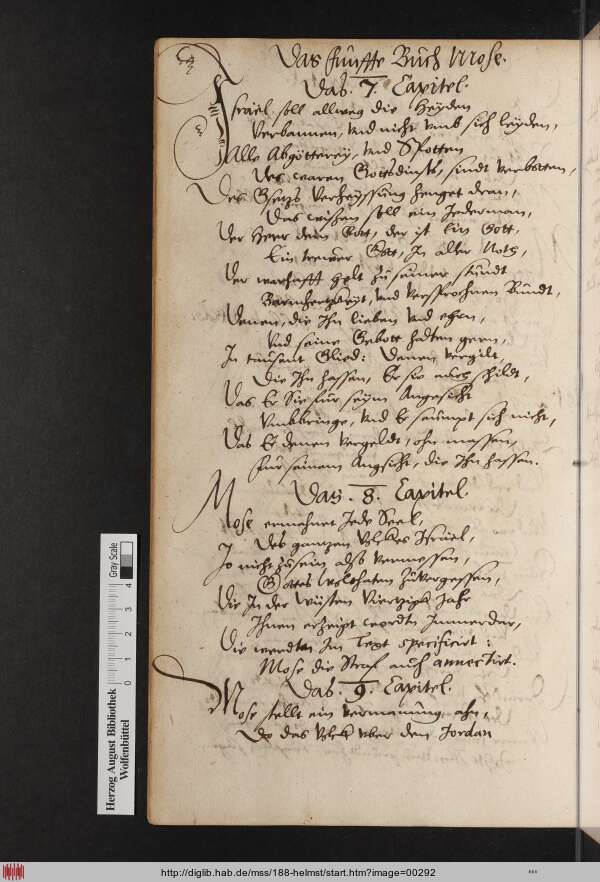 Das fünffte Buch Mose.
Das .7. Capitel.
Israel soll allweg die Heyden
Verbannen, vnd nicht vmb sich leyden,
Alle Abgötterey, vnd Spotten
Des waren Gottsdinsts, sindt verbotten,
Des Gsetzs Verheyssung henget dran,
Das wissen soll ein Jederman,
Der Herr dein Gott, der ist Ein Gott,
Ein trewer Gott, In aller Noth,
Der warhafft helt zu seiner stundt
Barmhertzkeyt, vnd versprochnen Bundt,
Denen, die Ihn lieben vnd ehrn,
Vnd seine Gebott halten gern,
In tausent Glied: Denen vergilt,
Die Ihn hassen, Er sie auch schildt,
Das Er Sie für seym Angesicht
Vmbbringe, vnd Er saumpt sich nicht,
Das Er denen vergeldt, ohn massen,
Für seinem Angsicht, die Ihn hassen.
Das .8. Capitel.
Mose ermahnet Jede Seel,
Des gantzen Volckes Israel,
So nicht zusein also vermessen,
Gottes wolthaten zuvergessen,
Die In der Wüsten Viertzigk Jahr
Ihnen erzeigt worden Immerdar,
Die werdten Im Text specificirt:
Mose die Straf auch annectirt.
Das .9. Capitel.
Mose stellt ein vermanung ahn,
Do das Volck vber den Jordan
Herzog August Bibliothek
Wolfenbüttel
0 1 2 3 4
Gray Scale
http://diglib.hab.de/mss/188-helmst/start.htm?image=00292